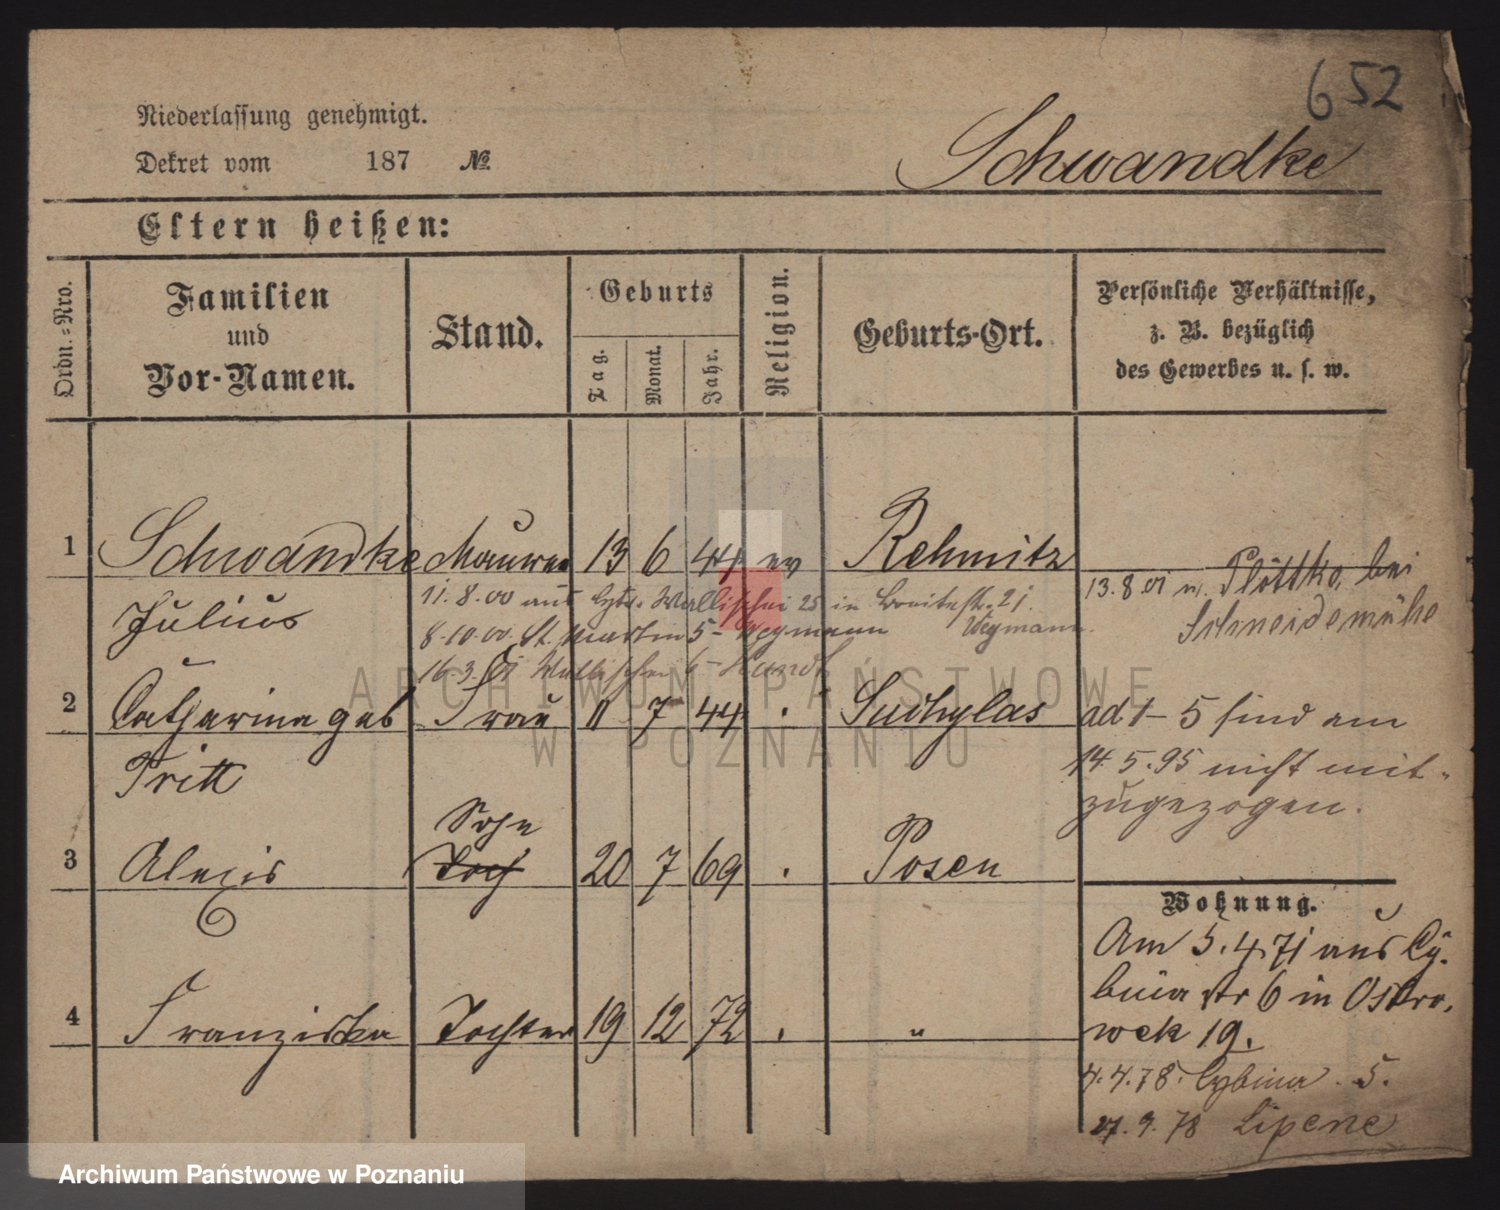 652
Niederlassung genehmigt.
Dekret vom 187 №
Schwandke
Eltern heißen:
Ordn.-Nro.
Familien und Vor-Namen.
Stand.
Geburts
Tag.
Monat.
Jahr.
Religion.
Geburts-Ort.
Persönliche Verhältnisse,
z. B. bezüglich
des Gewerbes u. s. w.
1 Schwandke Maurer 13 6 44 ev Rehmitz
Julius
11.8.00 aus Wallischei 25 in Breitestr. 21.
8.10.00. St. Martin 5 - Wegmann Wegmann
16.3.01 Wallischei 6 -
13.8.01 n. Plöttko, bei
Schneidemühe
2 Catharina geb Frau 11 7 44 . Suchylas
Pritt
ad 1 - 5 sind am
14.5.95 nicht mit-
zugezogen.
Sohn
3 Alexis Toch 20 7 69 . Posen
4 Franziska Tochter 19 12 72 . "
Wohnung.
Am 5.4.71 aus Cy-
bina str 6 in Ostro,
wek 19.
4.4.78. Cybina . 5.
27.9.78 Lipene
ARCHIWUM PAŃSTWOWE
W POZNANIU
Archiwum Państwowe w Poznaniu